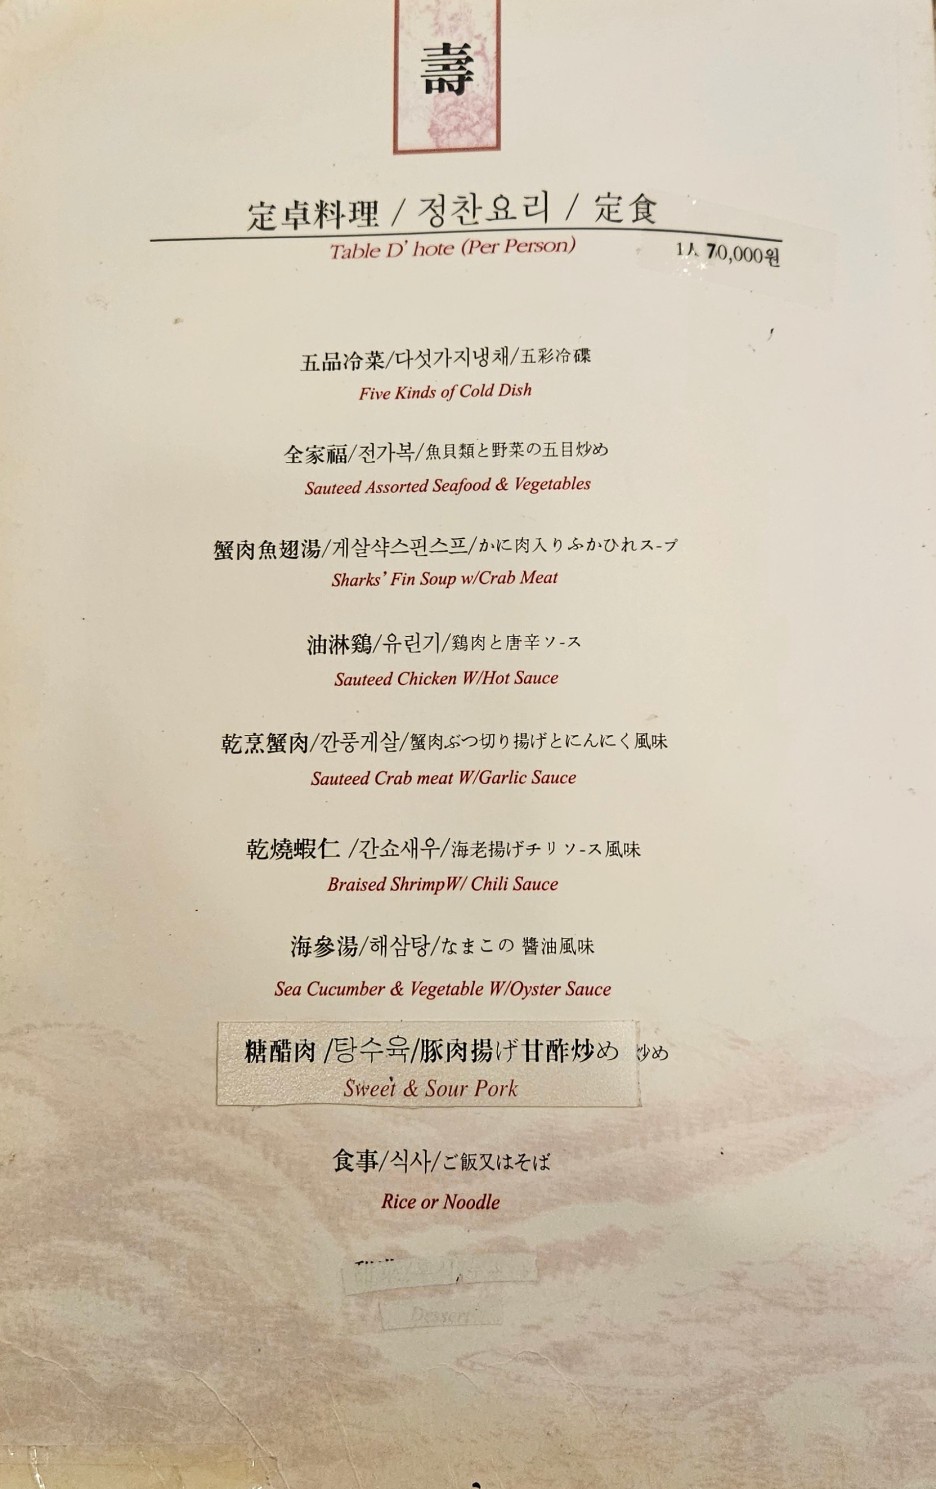 壽
定卓料理 / 정찬요리 / 定食
Table D' hote (Per Person)
1人 70,000원
五品冷菜/다섯가지냉채/五彩冷碟
Five Kinds of Cold Dish
全家福/전가복/魚貝類と野菜の五目炒め
Sauteed Assorted Seafood & Vegetables
蟹肉魚翅湯/게살샥스핀스프/かに肉入りふかひれスープ
Sharks' Fin Soup w/Crab Meat
油淋鷄/유린기/鷄肉と唐辛ソース
Sauteed Chicken W/Hot Sauce
乾烹蟹肉/깐풍게살/蟹肉ぶつ切り揚げとにんにく風味
Sauteed Crab meat W/Garlic Sauce
乾燒蝦仁 /간쇼새우/海老揚げチリソース風味
Braised ShrimpW/ Chili Sauce
海參湯/해삼탕/なまこの 醬油風味
Sea Cucumber & Vegetable W/Oyster Sauce
糖醋肉 /탕수육/豚肉揚げ甘酢炒め 炒め
Sweet & Sour Pork
食事/식사/ご飯又はそば
Rice or Noodle
Dessert